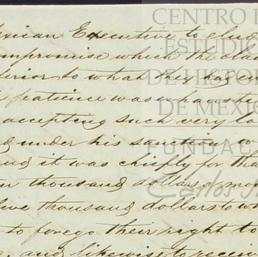 exican Executive to elud
compromise which the cla
erior to what they had
patience was exhaust
accepting such very
& under his sanction
and it was chiefly for tha
n thousand dollars mo
five thousand dollars to wh
to forego their right to
and likewise to receive
CENTRO
ESTUDI
DE HISTOR
DE MEXIC
FUNDAC
Carlos